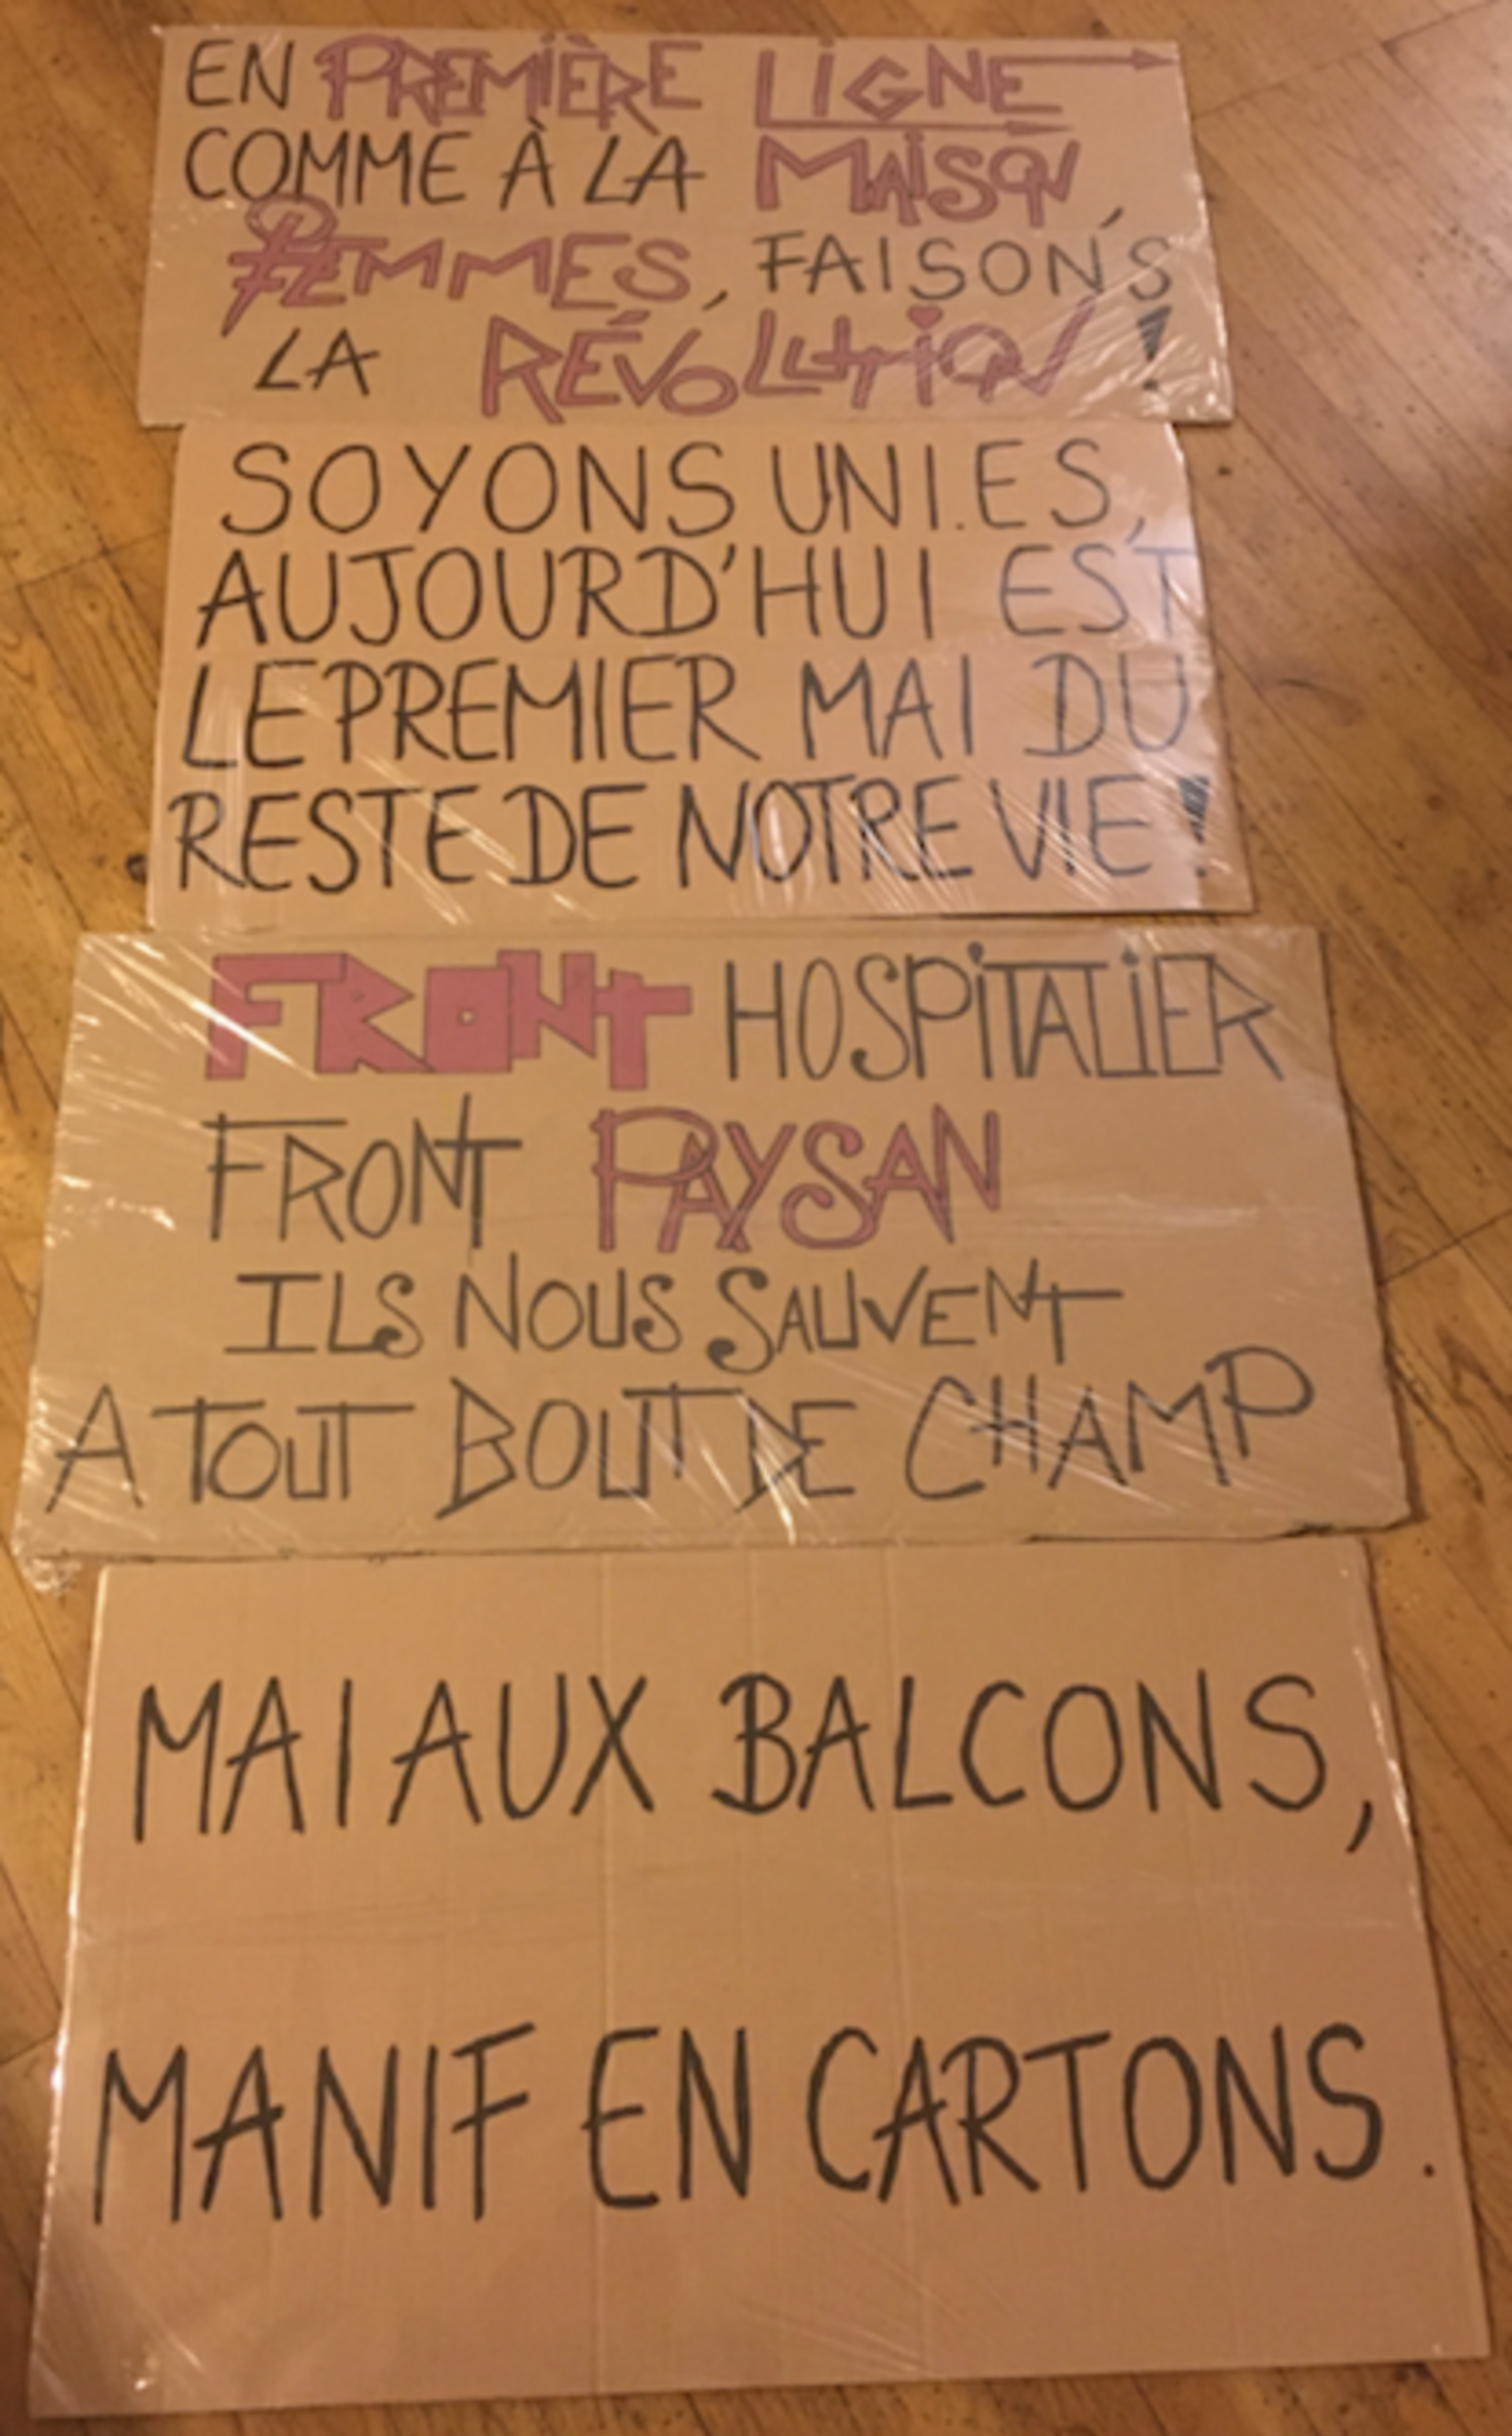 EN PREMIÈRE LIGNE
COMME À LA MAISON,
FEMMES, FAISONS
LA RÉVOLUTION !
SOYONS UNI.ES,
AUJOURD'HUI EST
LE PREMIER MAI DU
RESTE DE NOTRE VIE !
FRONT HOSPITALIER
FRONT PAYSAN
ILS NOUS SAUVENT
A TOUT BOUT DE CHAMP
MAI AUX BALCONS,
MANIF EN CARTONS.